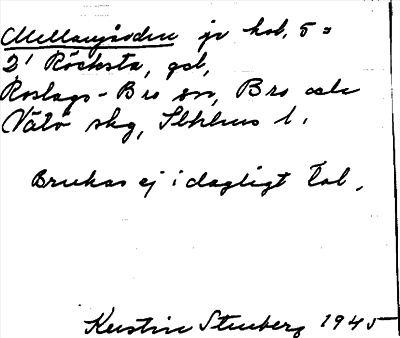 Mellangården gr hal. 5 =
2¹ Röcksta, gd,
Roslags-Bro sn, Bro och
Vätö skg, Sthlms l.
Brukas ej i dagligt tal.
Kerstin Stenberg 1945